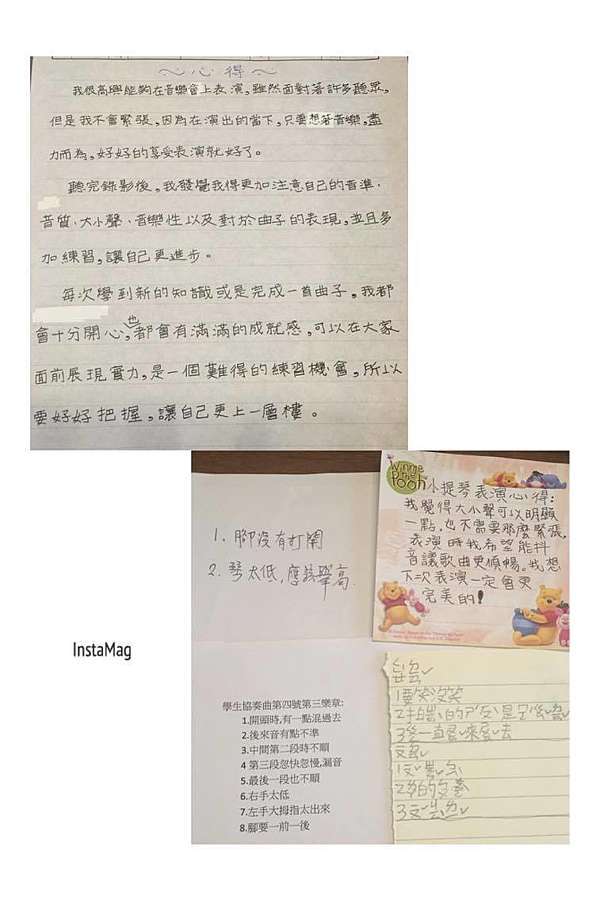 ～心得～
我很高興能夠在音樂會上表演，雖然面對著許多聽眾，
但是我不會緊張，因為在演出的當下，只要想著音樂，盡
力而為，好好的享受表演就好了。
聽完錄影後，我發覺我得更加注意自己的音準、
音質、大小聲、音樂性以及對於曲子的表現，並且多
加練習，讓自己更進步。
每次學到新的知識或是完成一首曲子，我都
會十分開心，也都會有滿滿的成就感，可以在大家
面前展現實力，是一個難得的練習機會，所以
要好好把握，讓自己更上一層樓。
1. 腳沒有打開
2. 琴太低，應該舉高.
Winnie
the
Pooh
小提琴表演心得：
我覺得大小聲可以明顯
一點，也不需要那麼緊張，
表演時我希望能抖
音讓歌曲更順暢。我想
下次表演一定會更
完美的！
InstaMag
學生協奏曲第四號第三樂章:
1.開頭時,有一點混過去
2.後來音有點不準
3.中間第二段時不順
4 第三段忽快忽慢,漏音
5.最後一段也不順
6.右手太低
7.左手大拇指太出來
8.腳要一前一後
1
2
3
1
2
3